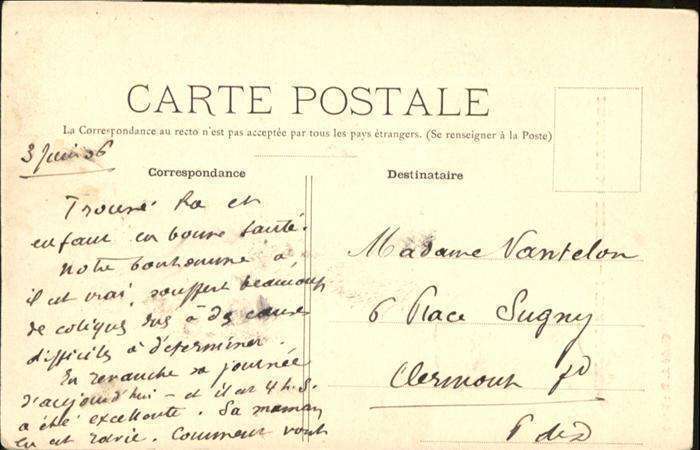 CARTE POSTALE
La Correspondance au recto n'est pas acceptée par tous les pays étrangers. (Se renseigner à la Poste)
3 Juin 06
Correspondance
Destinataire
Trouvé et
enfant en bonne santé.
Notre bonhomme a,
il est vrai, souffert beaucoup
de coliques dues à des causes
difficiles à déterminer.
En revanche sa journée
d'aujourd'hui - et il est 4 h. s.
a été excellente. Sa maman
en est ravie. Comment vont
Madame Vantelon
6 Place Sugny
Clermont fd
P de D